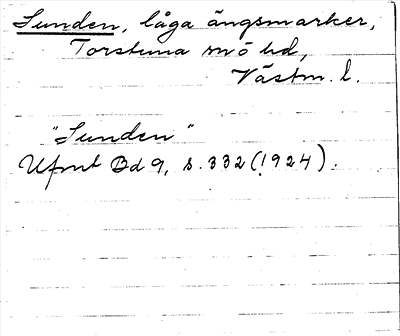 Sunden, låga ängsmarker,
Torstuna snö hd,
Västm. l.
"Sunden"
Ufmt Bd 9, s. 332 (1924).